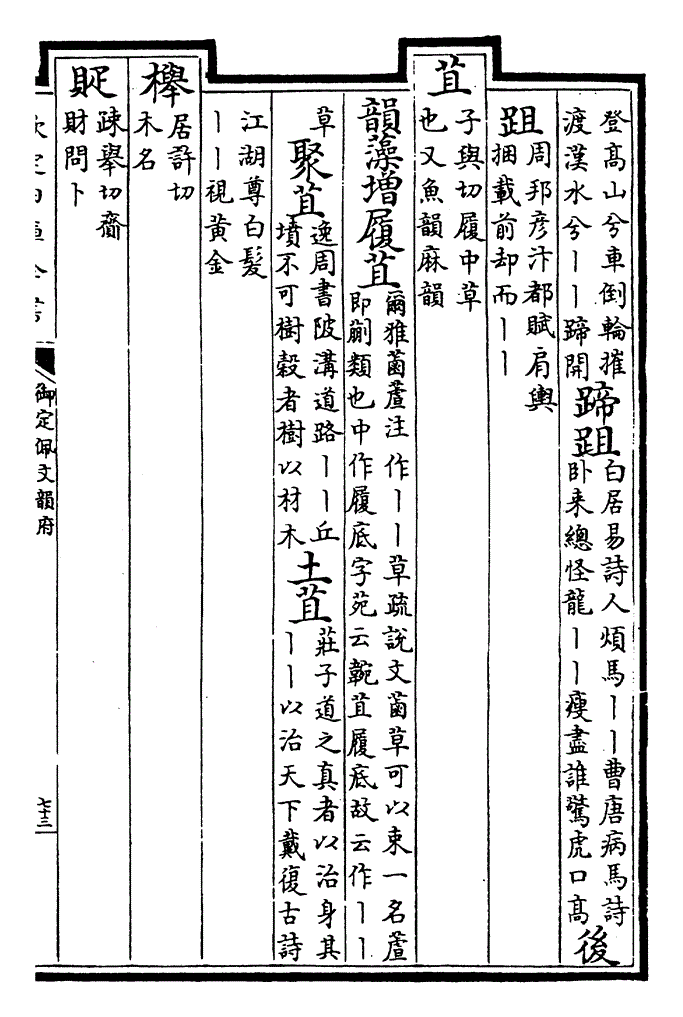 登髙山兮車倒輪摧
渡漢水兮丨丨蹄開
蹄跙
白居易詩人煩馬丨丨曹唐病馬詩
卧来總怪龍丨丨瘦盡誰驚虎口髙
後
跙
周邦彦汴都賦肩輿
捆載前却而丨丨
苴
子與切履中草
也又魚韻麻韻
韻藻增履苴
爾雅菌蔖注作丨丨草疏說文菌草可以束一名蔖
即蒯類也中作履底字苑云䩩苴履底故云作丨丨
草
聚苴
逸周書陂溝道路丨丨丘
墳不可樹榖者樹以材木
土苴
莊子道之真者以治身其
丨丨以治天下戴復古詩
江湖尊白髮
丨丨視黄金
櫸
居許切
木名
䝪
踈舉切齎
財問卜
欽定四庫全書
御定佩文韻府
七十三